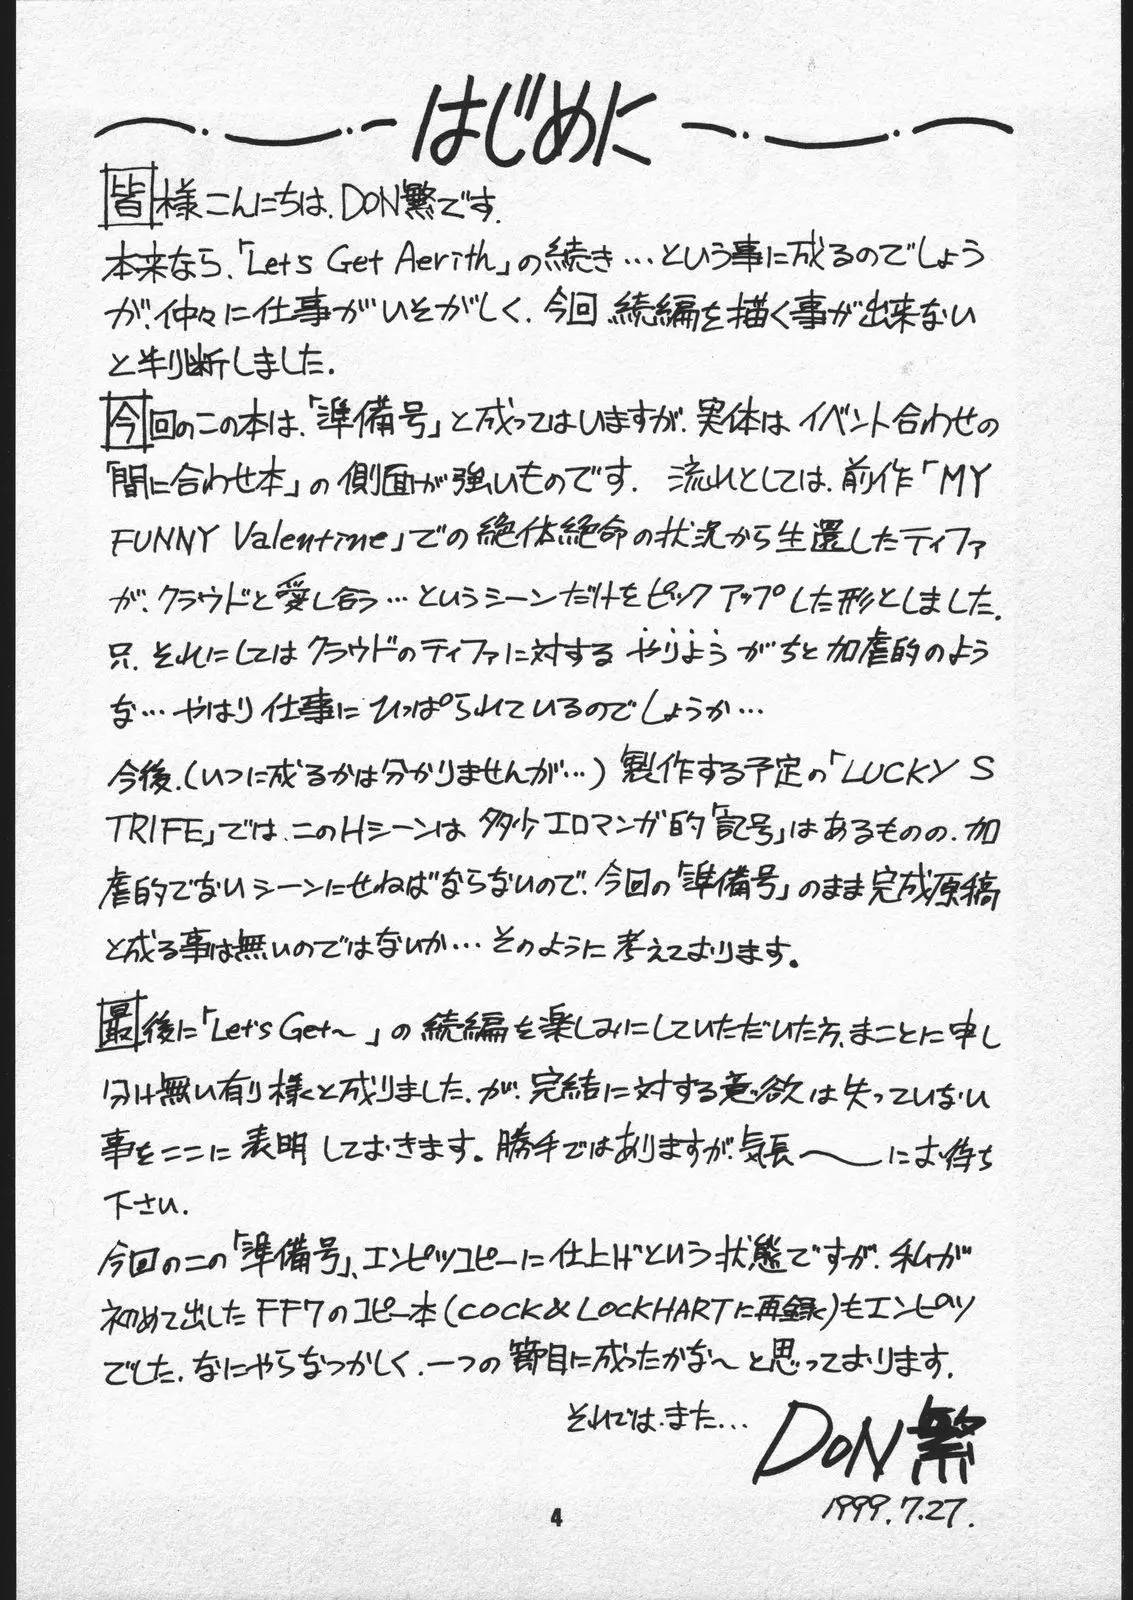 はじめに
皆様こんにちは、DON繁です.
本来なら、「Let's Get Aerith」の続き…という事に成るのでしょう
が、仲々に仕事がいそがしく、今回、続編を描く事が出来ない
と判断しました.
今回のこの本は、「準備号」と成ってはいますが、実体はイベント合わせの
「間に合わせ本」の側面が強いものです. 流れとしては、前作「MY
FUNNY Valentine」での絶体絶命の状況から生還したティファ
が、クラウドと愛し合う…というシーンだけをピックアップした形としました.
只、それにしてはクラウドのティファに対するやりようがちと加虐的のよう
な…やはり仕事にひっぱられているのでしょうか…
今後、(いつに成るかは分かりませんが…)製作する予定の「LUCKY S
TRIFE」では、このHシーンは多少エロマンガ的「記号」はあるものの、加
虐的でないシーンにせねばならないので、今回の「準備号」のまま完成原稿
と成る事は無いのではないか…そのように考えております。
最後に「Let's Get〜」の続編を楽しみにしていただいた方、まことに申し
分け無い有り様と成りました、が、完結に対する意欲は失っていない
事をここに表明しておきます。勝手ではありますが、気長〜にお待ち
下さい.
今回のこの「準備号」、エンピツコピーに仕上げという状態ですが、私が
初めて出したFF7のコピー本(COCK&LOCKHARTに再録)もエンピツ
でした、なにやらなつかしく、一つの節目に成ったかな〜と思っております.
それでは、また…
DON繁
1999.7.27.
4